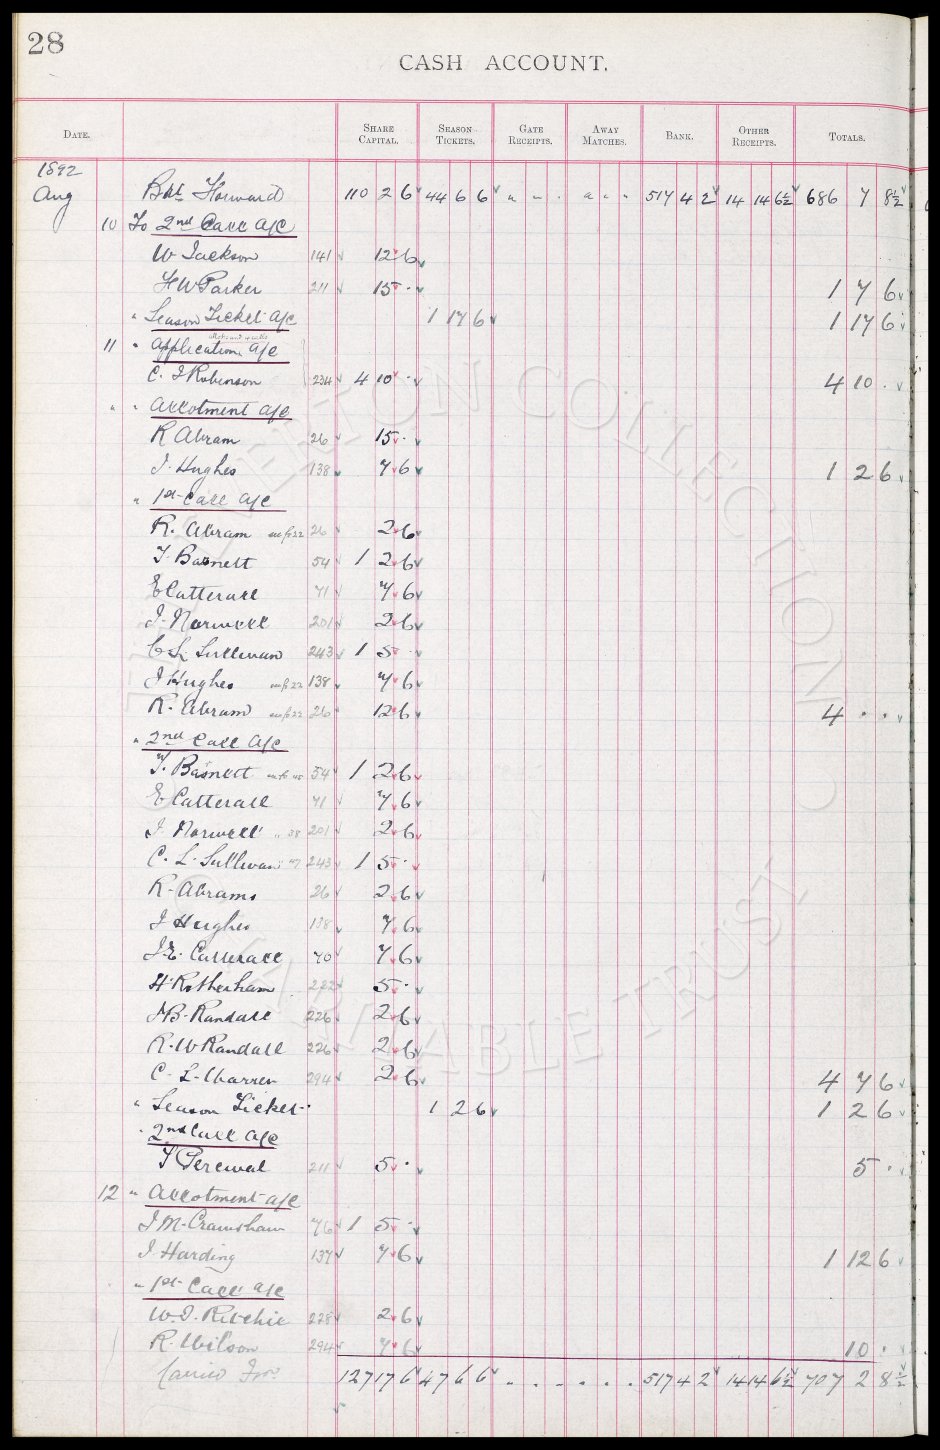 28
CASH ACCOUNT.
DATE. SHARE CAPITAL. SEASON TICKETS. GATE RECEIPTS. AWAY MATCHES. BANK. OTHER RECEIPTS. TOTALS.
1892
Aug Bal Forward 110 2 6 44 6 6 " - . " . . 517 4 2 14 14 6½ 686 7 8½
10 To 2nd Call a/c
W Jackson 141 12 6
F W Parker 211 15 . 1 7 6
" Season Ticket a/c 1 17 6 1 17 6
11 " Application a/c
C. J Robinson 234 4 10 . 4 10 .
" " Allotment a/c
R Abram 26 15 .
J. Hughes 138 7 6 1 2 6
" 1st Call a/c
R. Abram 22 26 2 6
T. Basnett 54 1 2 6
E Catterall 71 7 6
J. Norwell 201 2 6
C. L. Sullivan 243 1 5 .
J Hughes 22 138 7 6
R. Abram 22 26 12 6 4 . .
" 2nd Call a/c
T. Basnett 54 1 2 6
E Catterall 71 7 6
J. Norwell " 38 201 2 6
C. L. Sullivan 243 1 5 .
R. Abrams 26 2 6
J Hughes 138 7 6
J. E. Catterall 70 7 6
H Rotherham 222 5 .
J B. Randall 226 2 6
R. W Randall 226 2 6
C. L. Warren 294 2 6 4 7 6
" Season Ticket 1 2 6 1 2 6
" 2nd Call a/c
T Percival 211 5 . 5 .
12 " Allotment a/c
J M. Cramsham 76 1 5 .
J. Harding 137 7 6 1 12 6
" 1st Call a/c
W. J. Ritchie 228 2 6
R. Wilson 294 7 6 10 .
Carried For. 127 17 6 47 6 6 " . . . . . 517 4 2 14 14 6½ 707 2 8½
EVERTON COLLECTION
CHARITABLE TRUST